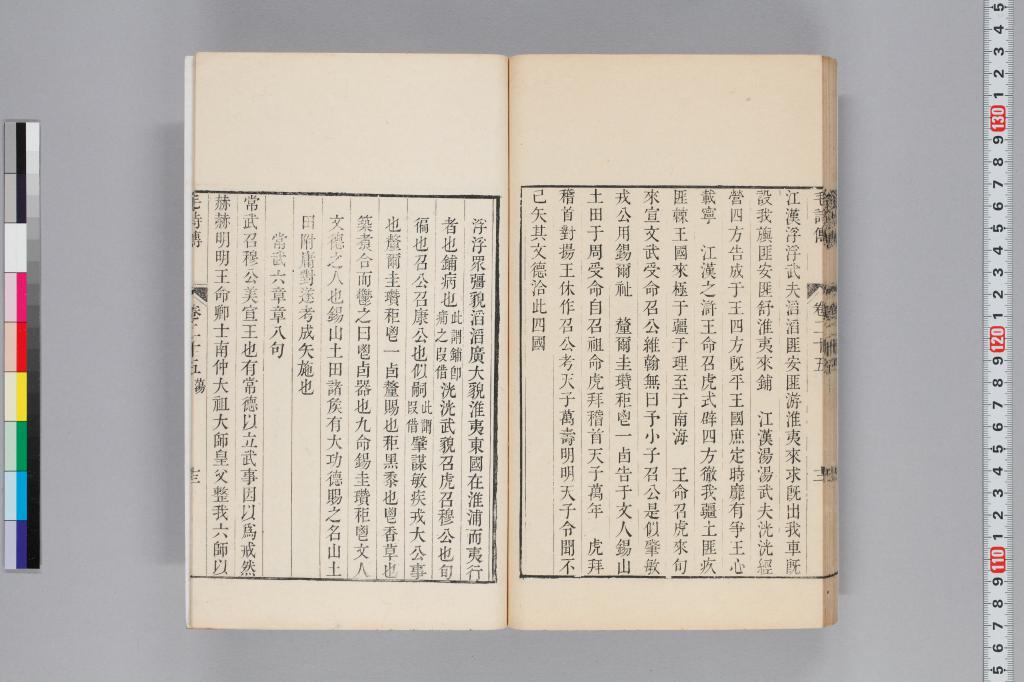 江漢浮浮武夫滔滔匪安匪游淮夷來求旣出我車旣
設我旟匪安匪舒淮夷來鋪　江漢湯湯武夫洸洸經
營四方告成于王四方旣平王國庶定時靡有爭王心
載寧　江漢之滸王命召虎式辟四方徹我疆土匪疚
匪棘王國來極于疆于理至于南海　王命召虎來旬
來宣文武受命召公維翰無曰予小子召公是似肇敏
戎公用錫爾祉　釐爾圭瓚秬鬯一卣告于文人錫山
土田于周受命自召祖命虎拜稽首天子萬年　虎拜
稽首對揚王休作召公考天子萬壽明明天子令聞不
已矢其文德洽此四國
浮浮眾彊貌滔滔廣大貌淮夷東國在淮浦而夷行
者也鋪病也此謂鋪卽痡之叚借洸洸武貌召虎召穆公也旬
徧也召公召康公也似嗣此謂叚借肇謀敏疾戎大公事
也釐爾圭瓚秬鬯一卣釐賜也秬黑黍也鬯香草也
築煑合而鬱之曰鬯卣器也九命錫圭瓚秬鬯文人
文德之人也錫山土田諸矦有大功德賜之名山土
田附庸對遂考成矢施也
常武六章章八句
常武召穆公美宣王也有常德以立武事因以爲戒然
赫赫明明王命卿士南仲大祖大師皇父整我六師以
毛詩傳
卷二十五　蕩
十三
130
120
110